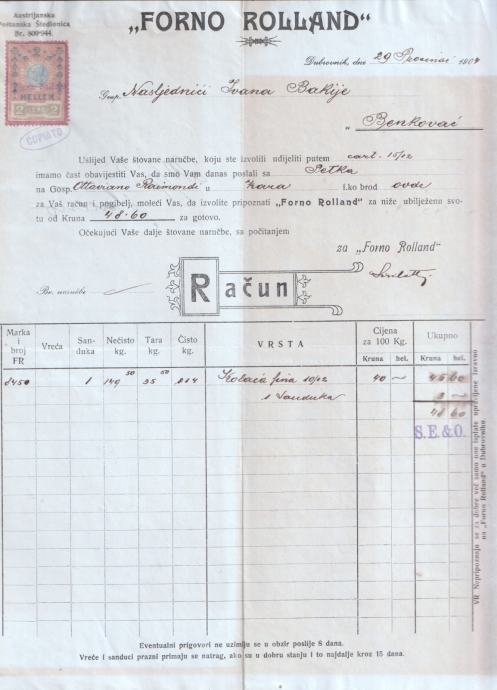 Austrijanska
Poštanska Štedionica
Br. 809·944.
„FORNO ROLLAND"
Dubrovnik, dne 29 190
HELLER
2 2
COPIATO
Gosp. Nasljednići Ivana Bakije
„ Benkovac
Uslijed Vaše štovane naručbe, koju ste izvolili udijeliti putem cart. 15/12
imamo čast obavijestiti Vas, da smo Vam danas poslali sa Petka
na Gosp. Ottaviano Raimondi u Zara f.ko brod ovde
za Vaš račun i pogibelj, moleći Vas, da izvolite pripoznati „Forno Rolland" za niže ubilježenu svo-
tu od Kruna 48·60 za gotovo.
Očekujući Vaše dalje štovane naručbe, sa počitanjem
za „Forno Rolland"
Br. naručbe
Račun
Marka i broj FR
Vreća
Sanduka
Nečisto kg.
Tara kg.
Čisto kg.
VRSTA
Cijena za 100 Kg.
Kruna hel.
Ukupno
Kruna hel.
1 149 50 35 50 114 Kolaća fina 10/12 40 ~ 45 60
1 Sanduka 3 ~
48 60
S. E. & O.
VR Nepripoznaju se za dobre već samo one isplate upravljene izravno
na „Forno Rolland" u Dubrovniku.
Eventualni prigovori ne uzimlju se u obzir poslije 8 dana.
Vreće i sanduci prazni primaju se natrag, ako su u dobru stanju i to najdalje kroz 15 dana.